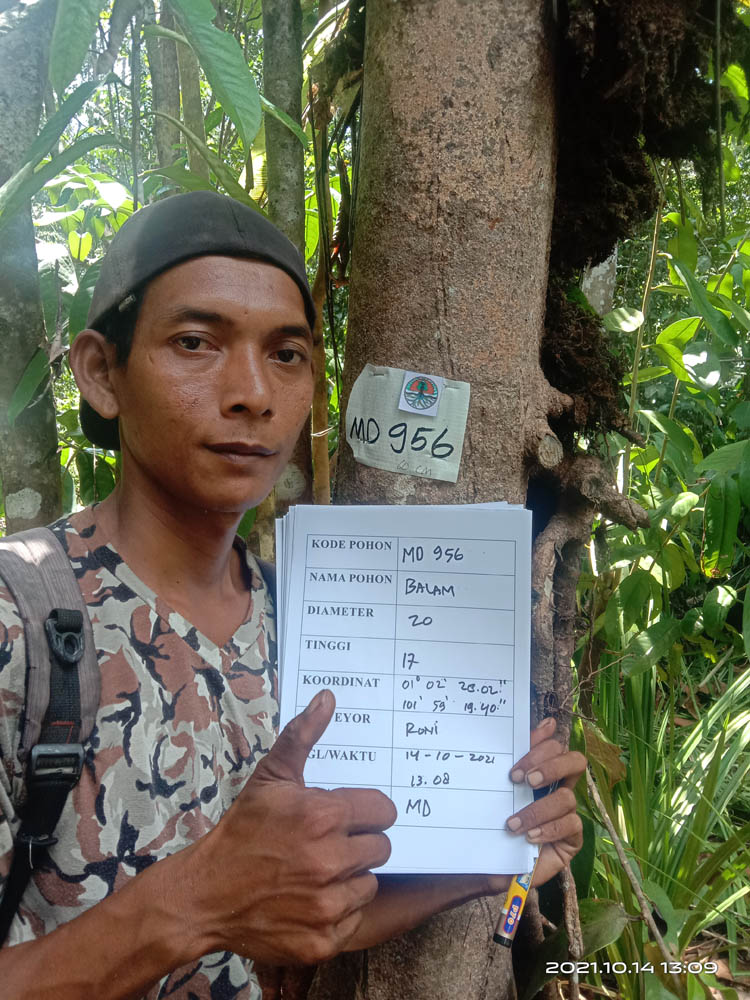 MD 956
20 CM
KODE POHON MD 956
NAMA POHON BALAM
DIAMETER 20
TINGGI 17
KOORDINAT 01° 02' 28.02"
101° 59' 19.40"
EYOR RONI
GL/WAKTU 14-10-2021
13.08
MD
2021.10.14 13:09